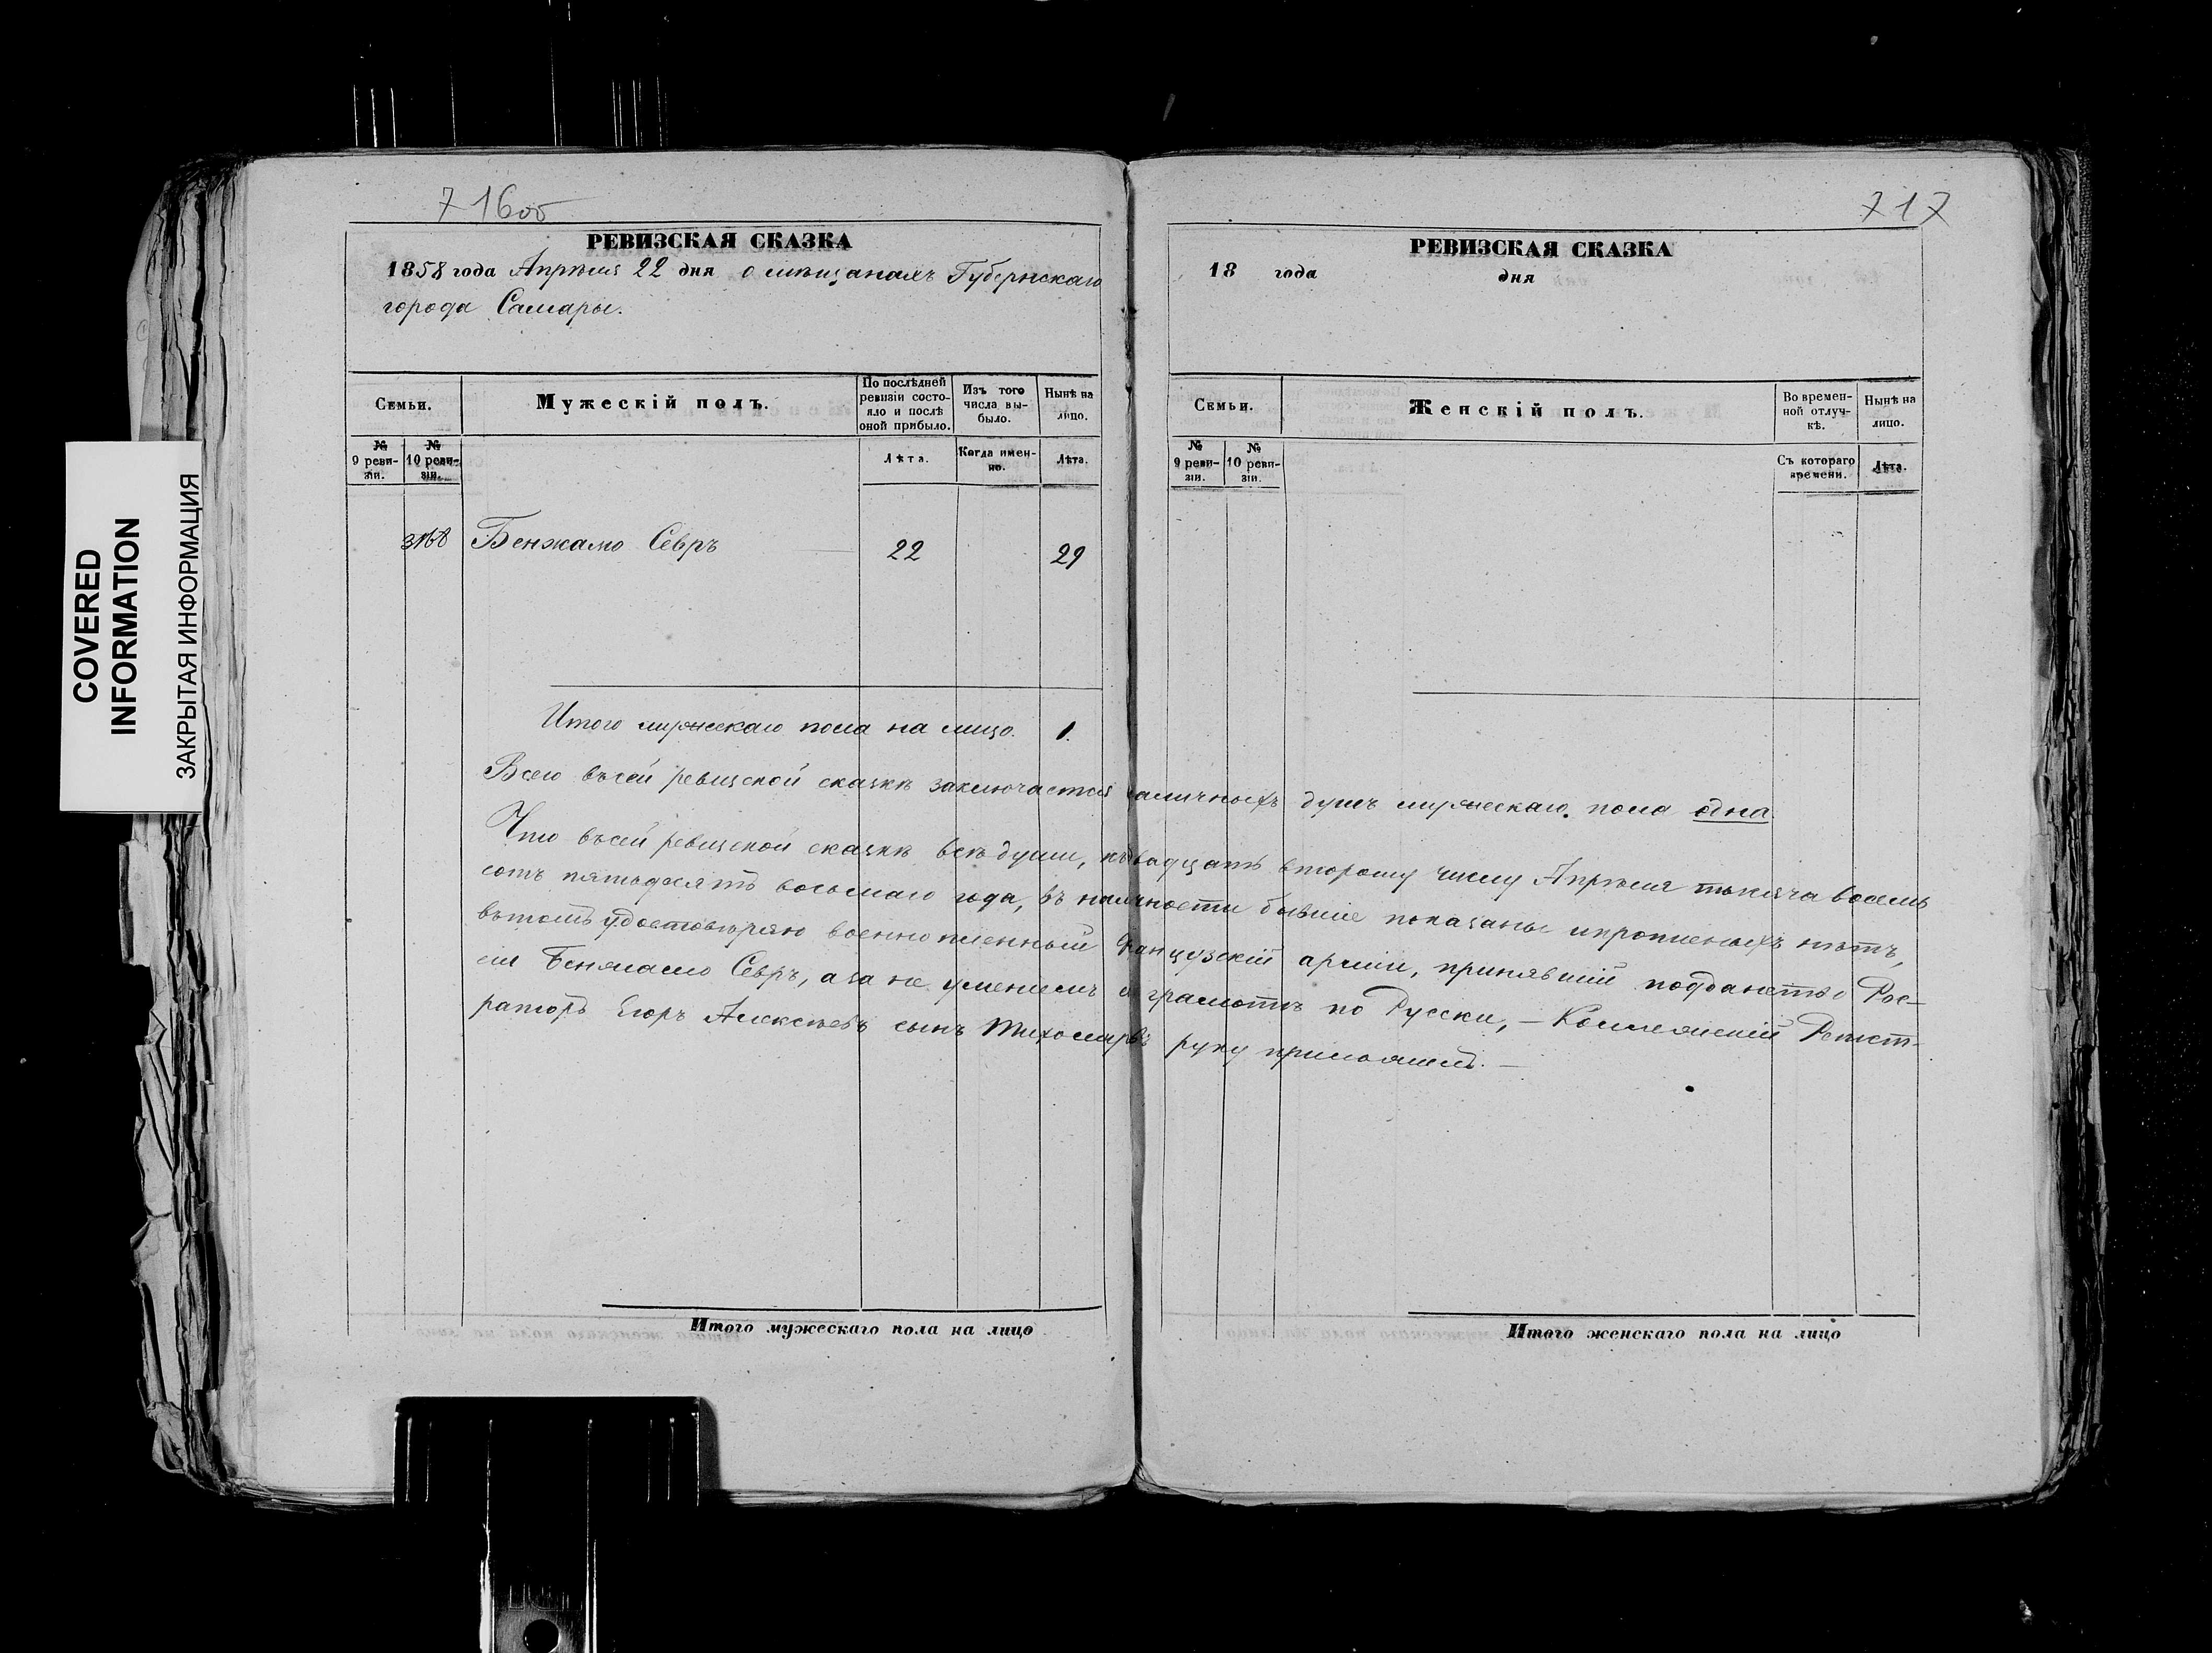 COVERED
INFORMATION
ЗАКРЫТАЯ ИНФОРМАЦИЯ
716об
РЕВИЗСКАЯ СКАЗКА
1858 года Апрѣля 22 дня о мѣщанахъ Губернскаго
города Самары.
Семьи.
Мужескій полъ.
По послѣдней
ревизіи состо-
яло и послѣ
оной прибыло.
Изъ того
числа вы-
было.
Нынѣ на
лицо.
№
9 реви-
зіи.
№
10 реви-
зіи.
Лѣта.
Когда имен-
но.
Лѣта.
3168 Бенжамо Севръ 22 29
Итого мужескаго пола на лицо. 1.
Всего въсей ревизской сказкѣ заключается наличныхъ душъ мужескаго пола одна.
Что въсей ревизской сказкѣ всѣ души, къ двадцать второму числу Апрѣля тысяча восемь
сотъ пятьдесятъ восьмаго года, въ наличности бывшіе показаны ипрописныхъ нѣтъ,
вътомъ удостовѣряю военнопленный Французскій арміи, принявшій подданство Рос-
сіи Бенжамо Севръ, аза не уменіемъ его грамотѣ по Русски, – Коллежскій Регист-
раторъ Егоръ Алексѣевъ сынъ Тихомировъ руку приложилъ. –
Итого мужескаго пола на лицо
717
РЕВИЗСКАЯ СКАЗКА
18 года дня
Семьи.
Женскій полъ.
Во времен-
ной отлуч-
кѣ.
Нынѣ на
лицо.
№
9 реви-
зіи.
№
10 реви-
зіи.
Съ котораго
времени.
Лѣта.
Итого женскаго пола на лицо